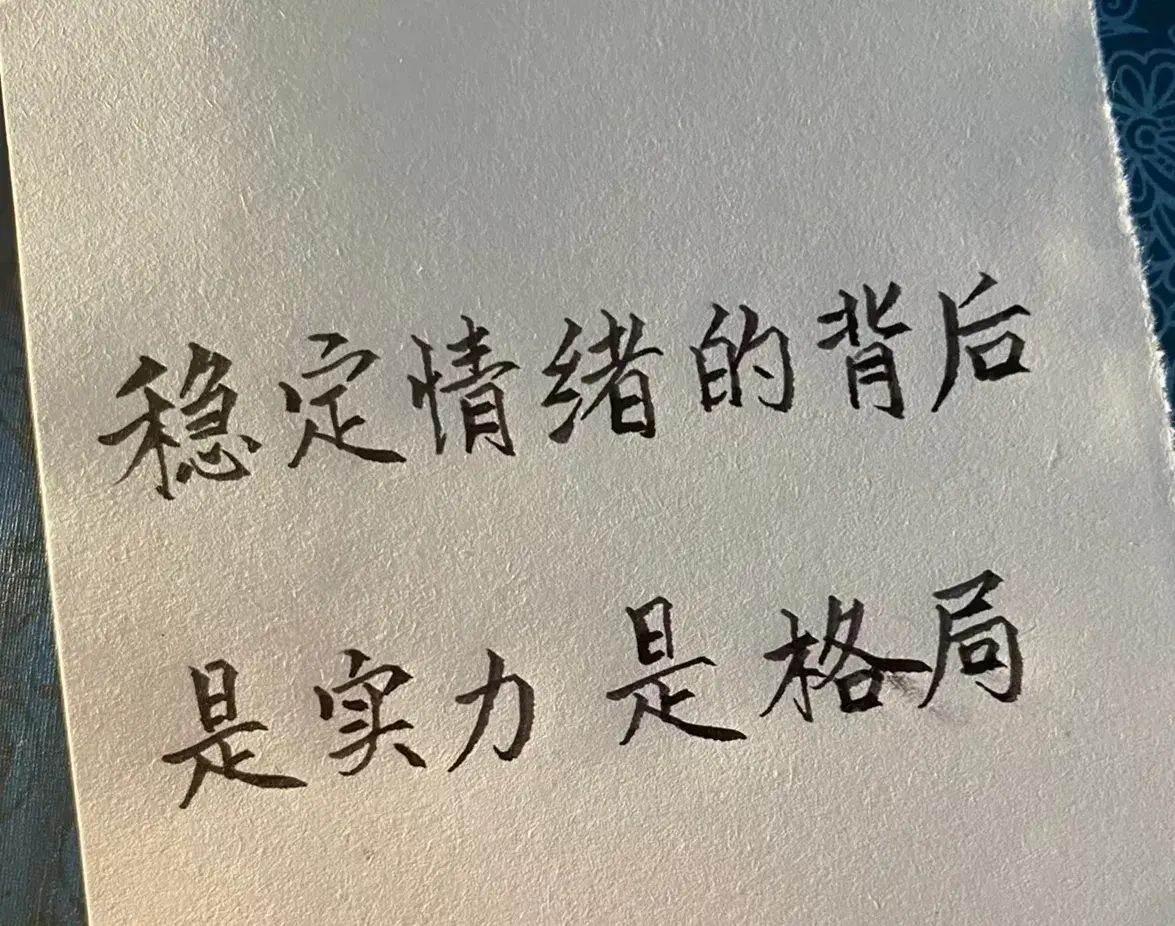 稳定情绪的背后
是实力 是格局